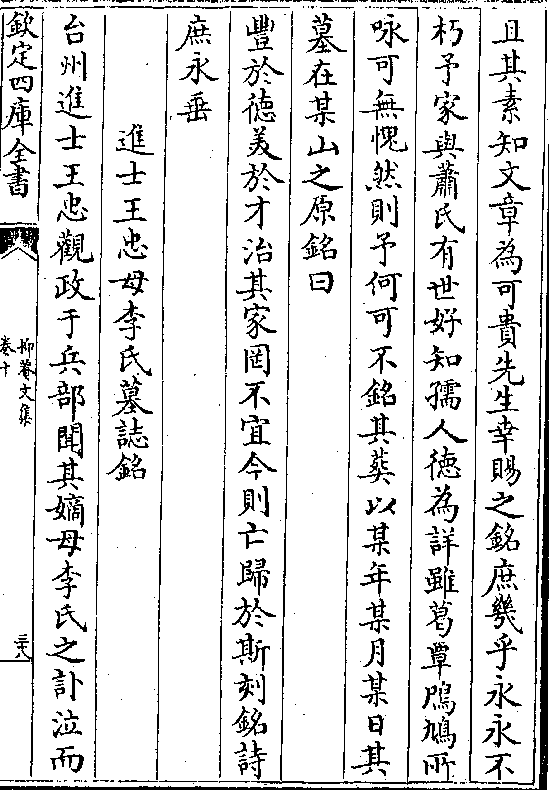 且其素知文章為可貴先生幸賜之銘庶幾乎永永不
朽予家與蕭氏有世好知孺人德為詳雖葛覃鳲鳩所
咏可無愧然則予何可不銘其葬以某年某月某日其
墓在某山之原銘曰
豐於徳美於才治其家罔不宜今則亡歸於斯刻銘詩
庶永垂
進士王忠母李氏墓誌銘
台州進士王忠觀政于兵部聞其嫡母李氏之訃泣而
欽定四庫全書
抑菴文集
卷十
三八